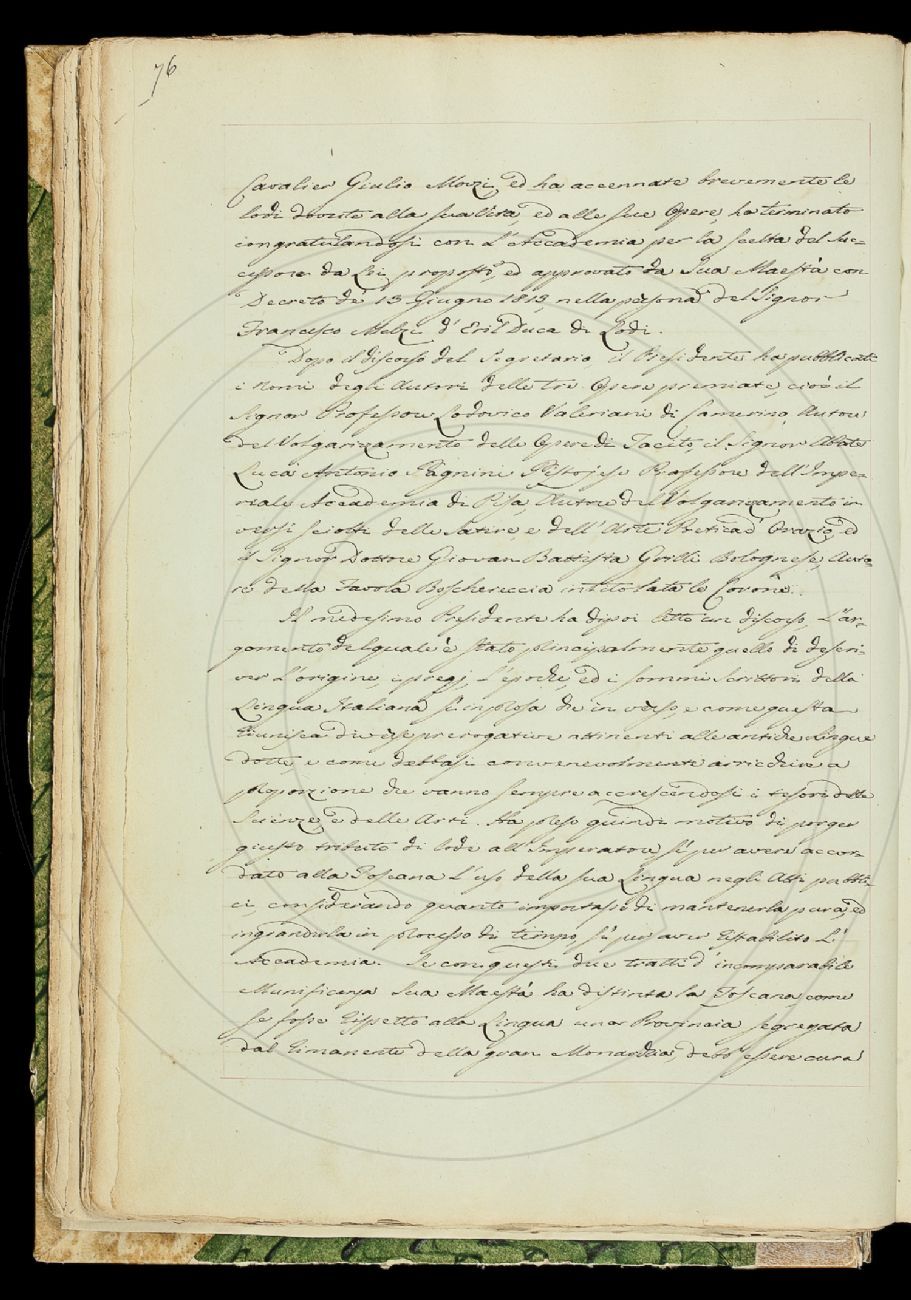 76
Cavalier Giulio Mozzi, ed ha accennate brevemente le
lodi dovute alla sua vita ed alle sue Opere, ha terminato
congratulandosi con L'Accademia per la scelta del Suc=
cessore da Lei proposto, ed approvato da Sua Maestà con
Decreto de' 13 Giugno 1813, nella persona del Signor
Francesco Melzi d'Eril Duca di Lodi.
Dopo il discorso del Segretario, il Presidente ha pubblicati
i Nomi degli Autori delle tre Opere premiate, cioè il
Signor Professore Lodovico Valeriani di Camerino, Autore
del Volgarizzamento delle Opere di Tacito, il Signor Abate
Luca Antonio Pagnini Pistojese Professore dell'Impe=
riale Accademia di Pisa, Autore del Volgarizzamento in
versi sciolti delle Satire e dell'Arte Poetica d'Orazio, ed
il Signor Dottore Giovan Battista Grilli Bolognese, Auto=
re della Favola Boschereccia intitolata le Corone.
Il medesimo Presidente ha dipoi letto un discorso, L'ar=
gomento del quale è stato principalmente quello di descri=
ver L'origine, i pregj, L'epoche, ed i sommi Scrittori della
Lingua Italiana sì in prosa che in verso, e come questa
riunisca diverse prerogative attinenti alle antiche Lingue
dotte, e come debbasi convenevolmente arricchire a
proporzione che vanno sempre accrescendosi i tesori delle
Scienze e delle Arti. Ha preso quindi motivo di porger
giusto tributo di lode all'Imperatore sì per avere accor=
dato alla Toscana L'uso della sua Lingua negli Atti pubbli=
ci, considerando quanto importasse di mantenerla pura, ed
ingrandirla in processo di tempo, sì per aver ristabilito L'
Accademia. Se con questi due tratti d'incomparabile
Munificenza Sua Maestà ha distinta la Toscana, come
se fosse rispetto alla Lingua una Provincia segregata
dal rimanente della gran Monarchia, debb'essere cura